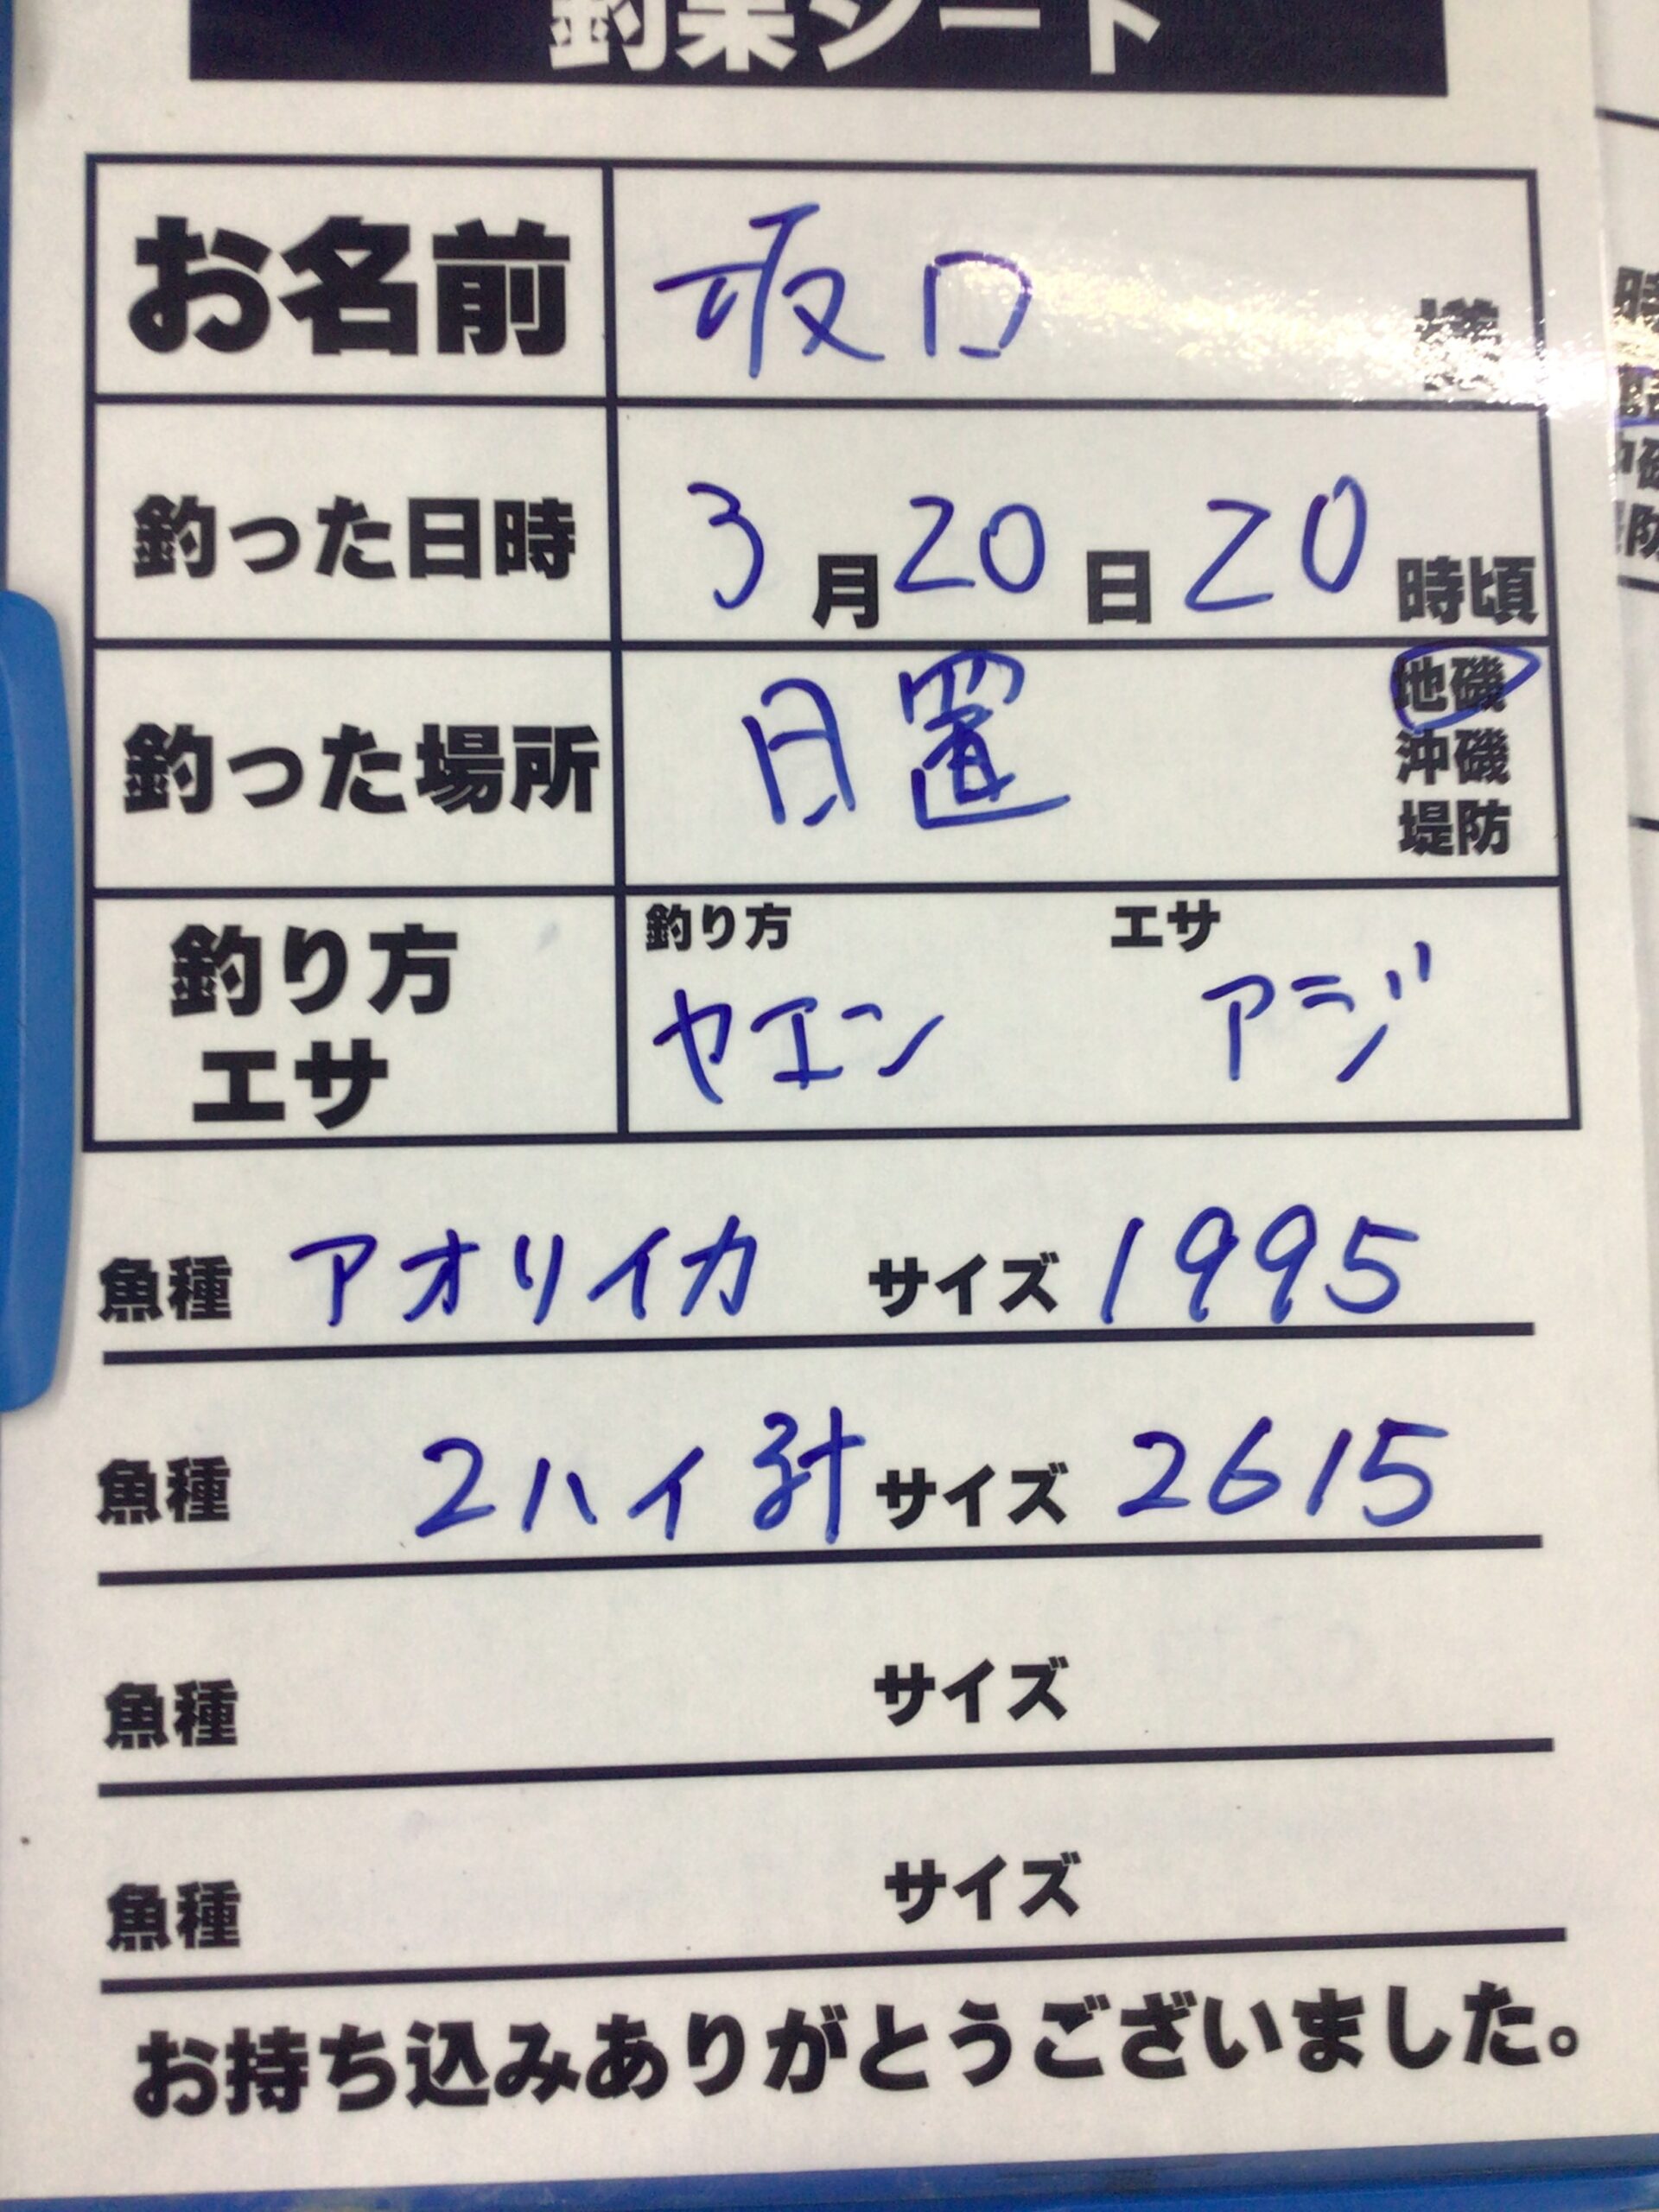 釣果シート
お名前 坂口 様
釣った日時 3月20日20時頃
釣った場所 日置 地磯
沖磯
堤防
釣り方 エサ
釣り方 ヤエン エサ アジ
魚種 アオリイカ サイズ 1995
魚種 2ハイ計 サイズ 2615
魚種 サイズ
魚種 サイズ
お持ち込みありがとうございました。